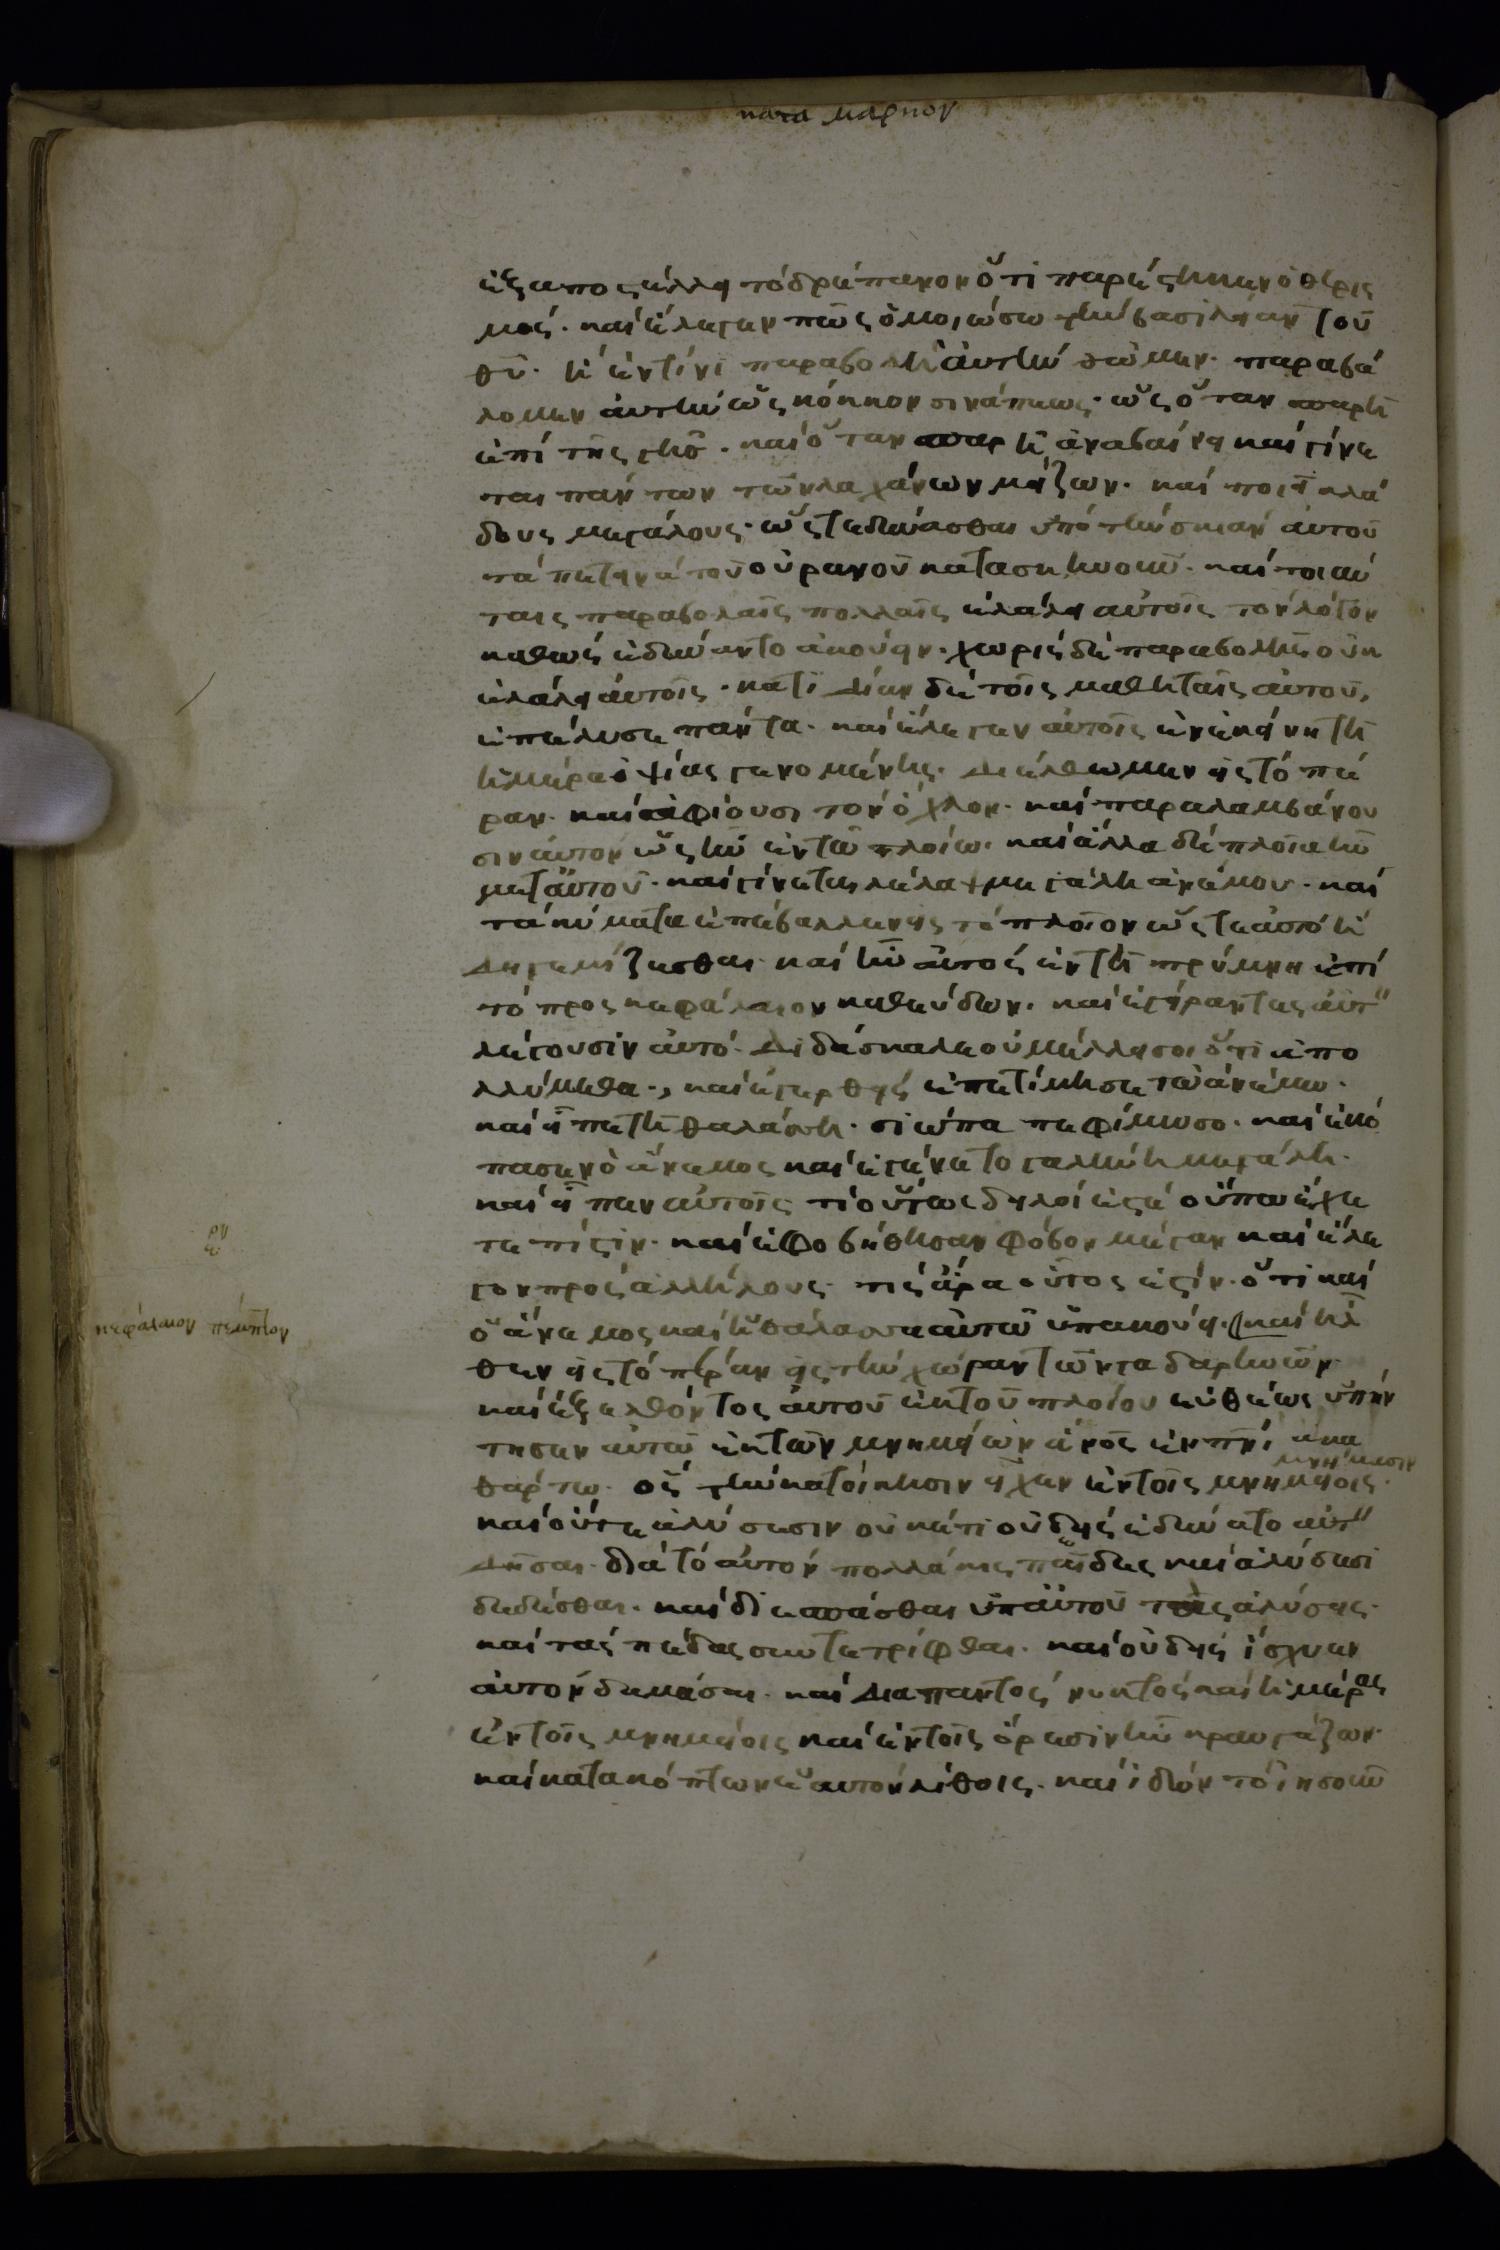 κατα μαρκον
ἐξαποστέλλει τὸ δρέπανον ὅτι παρέστηκεν ὁ θερισ
μός. καὶ ἔλεγεν πῶς ὁμοιώσω τὴν βασιλείαν τοῦ
θῦ. ἢ ἐν τίνι παραβολῆ ἀυτὴν θῶμεν. παραβά
λομεν ἀυτὴν ὡς κόκκον σινάπεως. ὡς ὅταν σπαρῆ
ἐπὶ τῆς γῆσ. καὶ ὅταν σπαρῆ, ἀναβαίνει καὶ γίνε
ται πάντων τῶν λαχάνων μείζων. καὶ ποιεῖ κλά
δους μεγάλους. ὥστε δύνασθαι ὑπὸ τὴν σκιὰν ἀυτοῦ
τὰ πετεινὰ τοῦ οὐρανοῦ κατασκηνοῦν. καὶ τοιαύ
ταις παραβολαῖς πολλαῖς ἐλάλει αὐτοῖς τὸν λόγον
καθὼς ἐδύναντο ἀκούειν. χωρὶς δὲ παραβολῆς οὐκ
ἐλάλει ἀυτοῖς. κατιδίαν δὲ τοῖς μαθηταῖς αὐτοῦ,
ἐπέλυσε πάντα. καὶ ἔλεγεν ἀυτοῖς ἐν ἐκείνη τῆ
ἡμέρα ὀψίας γενομένης. διέλθωμεν εἰς τὸ πέ
ραν. καὶ ἀφίουσι τὸν ὄχλον. καὶ παραλαμβάνου
σιν ἀυτὸν ὡς ἦν ἐν τῶ πλοίω. καὶ ἄλλα δὲ πλοῖα ἦν
μετ ἀυτοῦ. καὶ γίνεται λέλαψ μεγάλη ἀνέμου. καὶ
τὰ κύματα ἐπέβαλλεν εἰς τὸ πλοῖον ὥστε ἀυτὸ ἤ
δη γεμίζεσθαι. καὶ ἦν ἀυτὸς ἐν τῆ πρύμνη ἐπὶ
τὸ προσκεφάλαιον καθεύδων. καὶ ἐγείραντες ἀυτ
λέγουσιν ἀυτό. διδάσκαλε οὐ μέλλει σοι ὅτι ἀπο
λλύμεθα., καὶ ἐγερθεὶς ἐπετίμησε τῶ ἀνέμω.
καὶ εἶπε τῆ θαλάσση. σιώπα πεφίμωσο. καὶ ἐκό
πασεν ὁ ἄνεμος καὶ ἐγένετο γαλήνη μεγάλη.
καὶ εἶπεν αὐτοῖς τὶ οὕτως δειλοί ἐστέ οὔπω ἔχε
τε πίστιν. καὶ ἐφοβήθησαν φόβον μέγαν καὶ ἔλε
γον πρὸς ἀλλήλους. τις ἄρα οὗτος ἐστίν. ὅτι καὶ
ὁ ἄνεμος καὶ ἡ θάλασσα αὐτῶ ὑπακούει. καὶ ἦλ
θεν εἰς τὸ πέραν εἰς τὴν χώραν τῶν γαδαρηνῶν
καὶ ἐξελθόντος ἀυτοῦ ἐκ τοῦ πλοίου εὐθέως ὑπήν
τησεν ἀυτῶ ἐκ τῶν μνημείων ἄνος ἐν πνι ἀκα
θάρτω. ὃς τὴν κατοίκησιν εἶχεν ἐν τοῖς μνημείοις.
μνήμασιν
καὶ οὔτε ἀλύσεσιν οὐκέτι οὐδεὶς ἐδύνατο ἀυτ
δῆσαι. διὰ τὸ ἀυτὸν πολλάκις πέδαις καὶ ἀλύσεσι
δεδέσθαι. καὶ διεσπάσθαι ὑπ ἀυτοῦ τὰς ἀλύσεις.
καὶ τὰς πέδας συντετρίφθαι. καὶ οὐδεὶς ἴσχυεν
ἀυτὸν δαμάσαι. καὶ διαπαντὸς νυκτὸς καὶ ἡμέρας
ἐν τοῖς μνημείοις καὶ ἐν τοῖς ὄρεσιν ἦν κραυγάζων.
καὶ κατακόπτων ἑαυτὸν λίθοις. καὶ ἰδὼν τὸ ἰησοῦν
κεφάλαιον πέμπτον